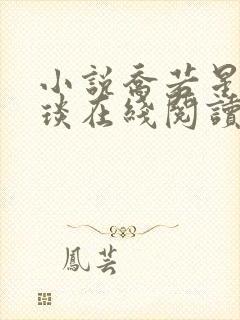 小說喬若星
琰在綫閱讀
鳳芸